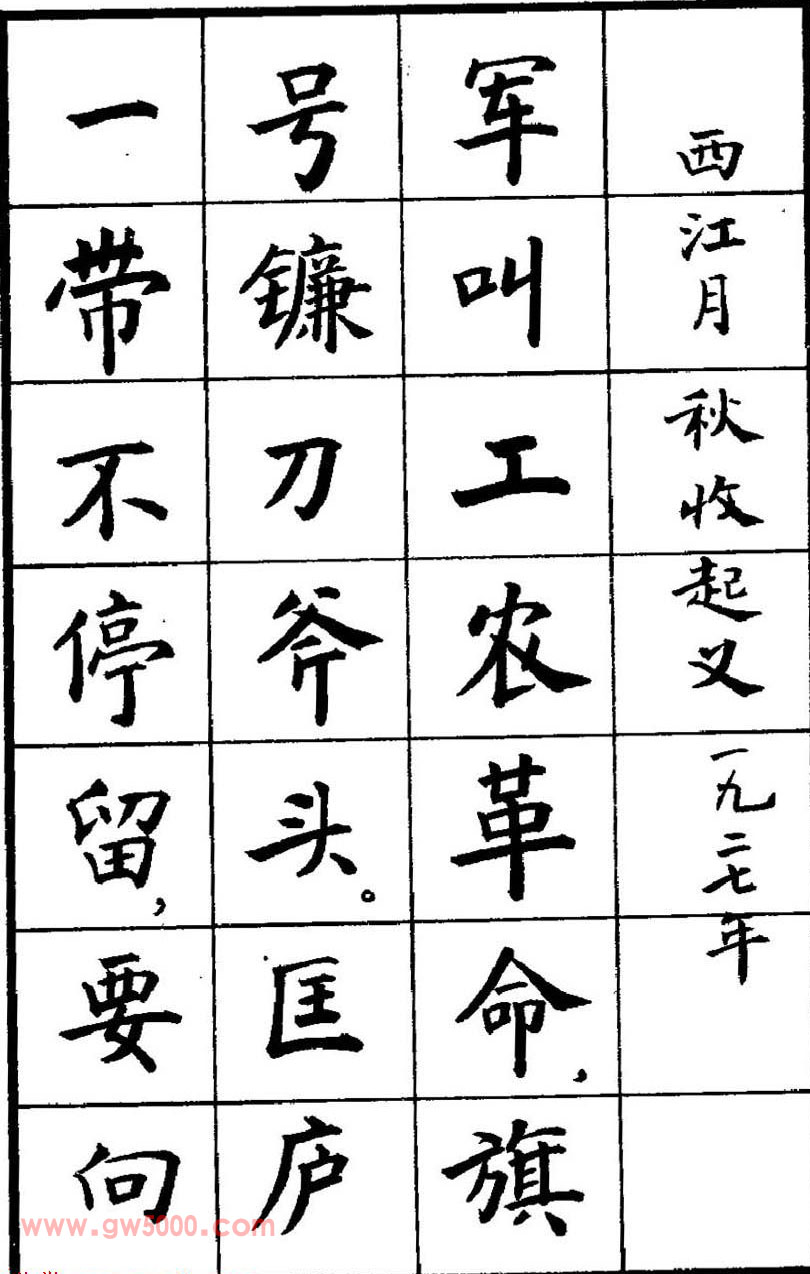 西江月 秋收起义 一九二七年
军叫工农革命，旗
号镰刀斧头。匡庐
一带不停留，要向
www.gw5000.com